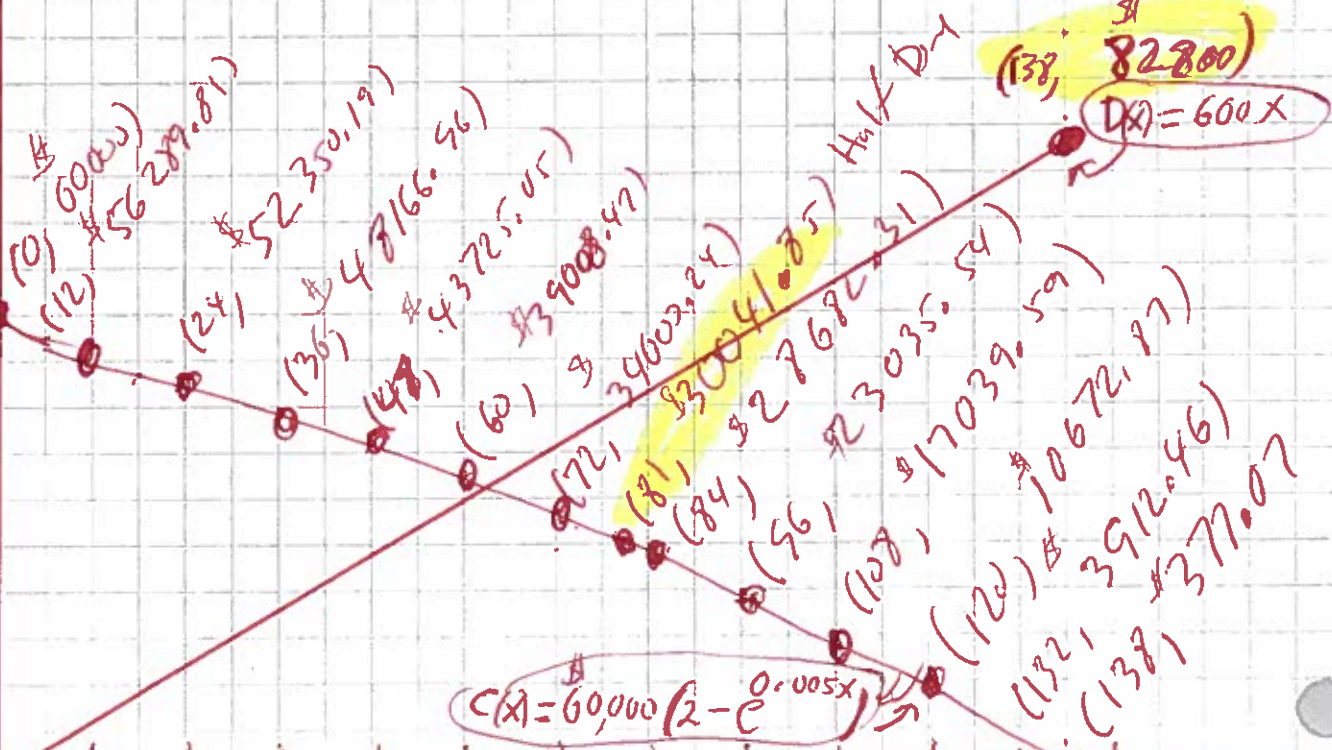 (0, $60000)
(12, $56289.81)
(24, $52350.19)
(36, $48166.96)
(48, $43725.05)
(60, $39008.47)
(72, $34000.24)
(81, $30041.85)
Half Due
(84, $28682.31)
(96, $23035.54)
(108, $17039.59)
(120, $10672.87)
(132, $3912.46)
(138, $377.07)
(138, $82800)
D(x) = 600x
C(x) = $60,000(2 - e^0.005x)